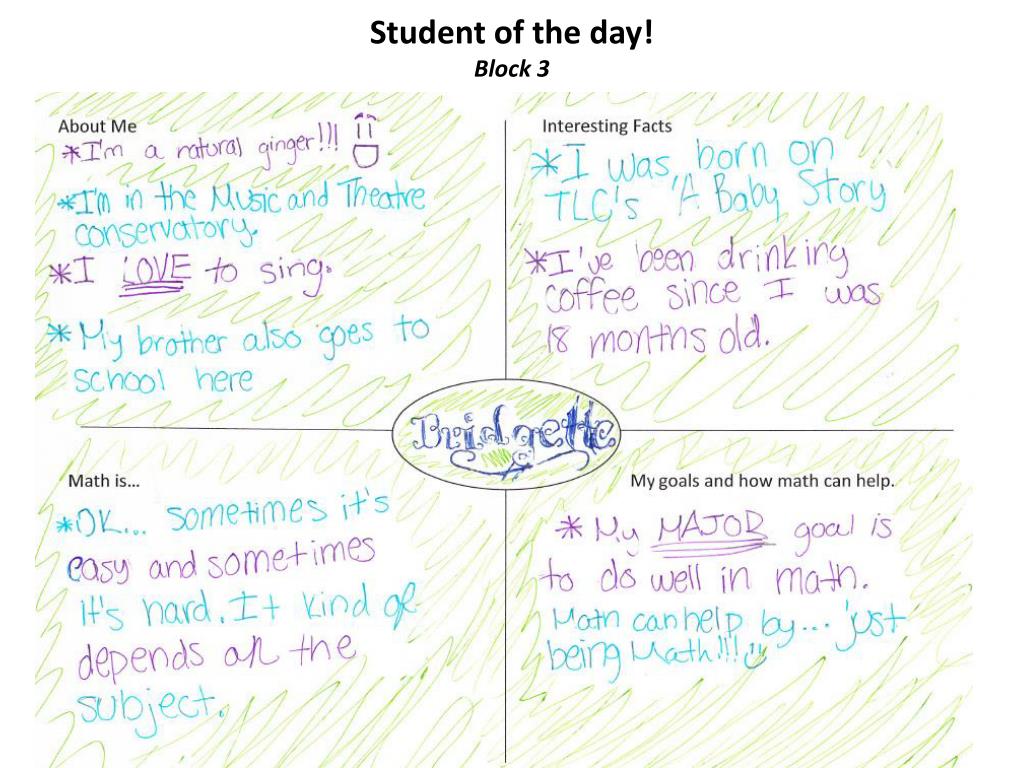 Student of the day!
Block 3
About Me
*I'm a natural ginger!!!
*I'm in the Music and Theatre
conservatory.
*I LOVE to sing.
*My brother also goes to
school here
Interesting Facts
*I was born on
TLC's 'A Baby Story
*I've been drinking
coffee since I was
18 months old.
Bridgette
Math is...
*OK... sometimes it's
easy and sometimes
it's hard. It kind of
depends on the
subject.
My goals and how math can help.
*My MAJOR goal is
to do well in math.
Math can help by... just
being Math!!!